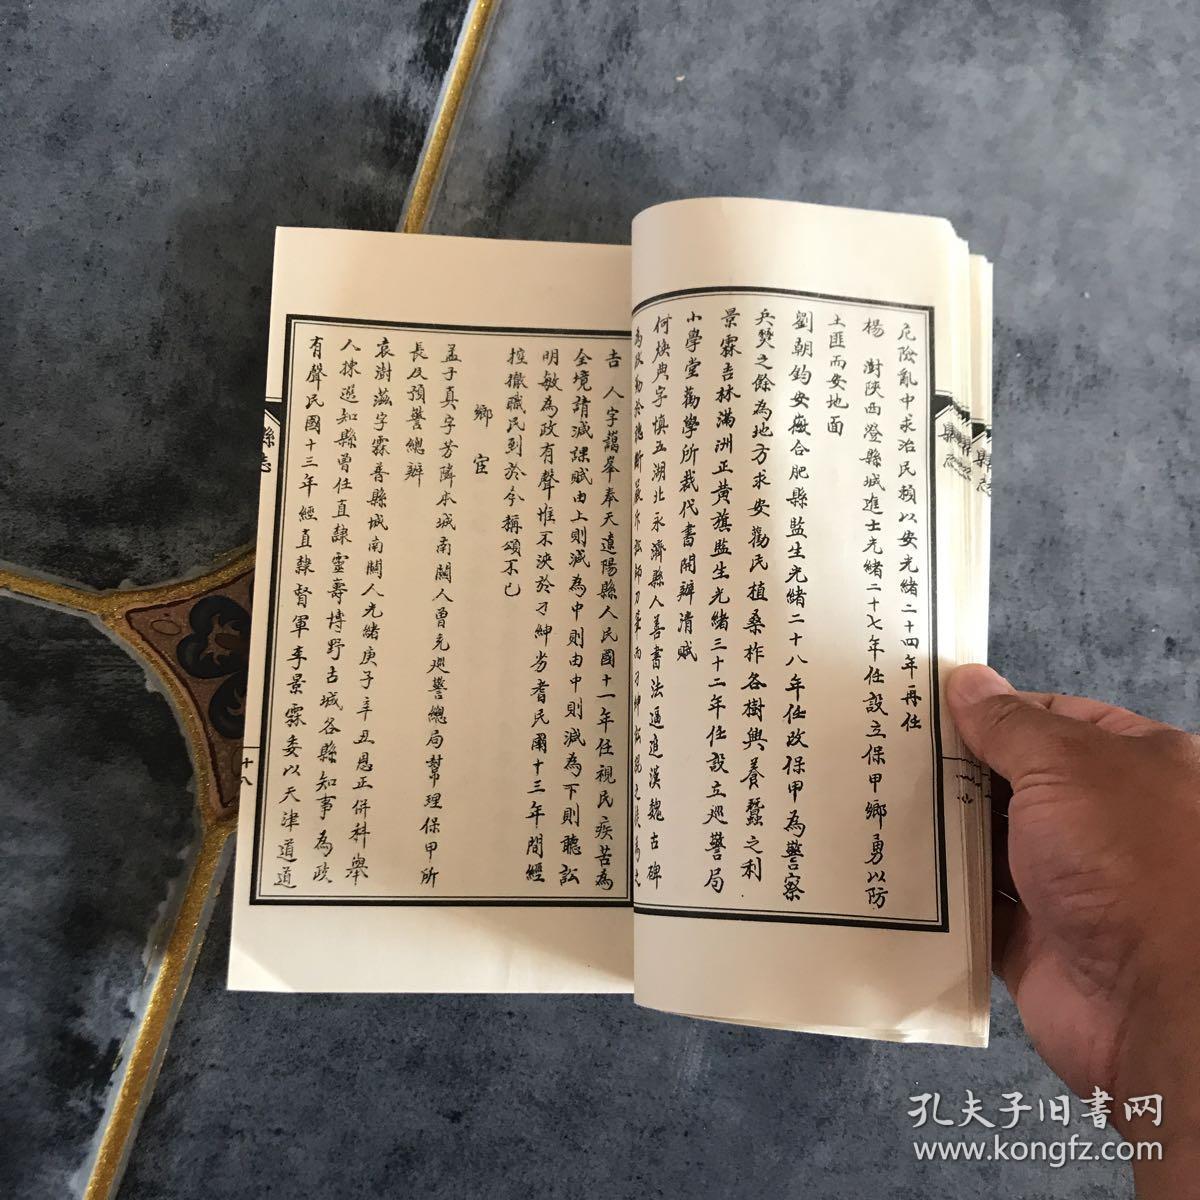 危險亂中求治民賴以安光緒二十四年再任
楊 澍陝西澄縣城進士光緒二十七年任設立保甲鄉勇以防
土匪而安地面
劉朝鈞安徽合肥縣監生光緒二十八年任改保甲為警察
兵燹之餘為地方求安勸民植桑柞各樹興養蠶之利
景霖吉林滿洲正黃旗監生光緒三十二年任設立巡警局
小學堂勸學所裁代書開辦清賦
何煐典字慎五湖北永濟縣人善書法逼追漢魏古碑
為政
吉 人字藹峯奉天遼陽縣人民國十一年任視民疾苦為
全境請減課賦由上則減為中則由中則減為下則聽訟
明敏為政有聲惟不洽於刁紳劣耆民國十三年間經
控撤職民到於今稱頌不已
鄉 宦
孟于真字芳隣本城南關人曾充巡警總局幫理保甲所
長及預警總辦
袁澍滋字霖普縣城南關人光緒庚子辛丑恩正併科舉
人揀選知縣曾任直隸靈壽博野古城各縣知事為政
有聲民國十三年經直隸督軍李景霖委以天津道道
縣志
十八
縣志
孔夫子旧书网
www.kongfz.com